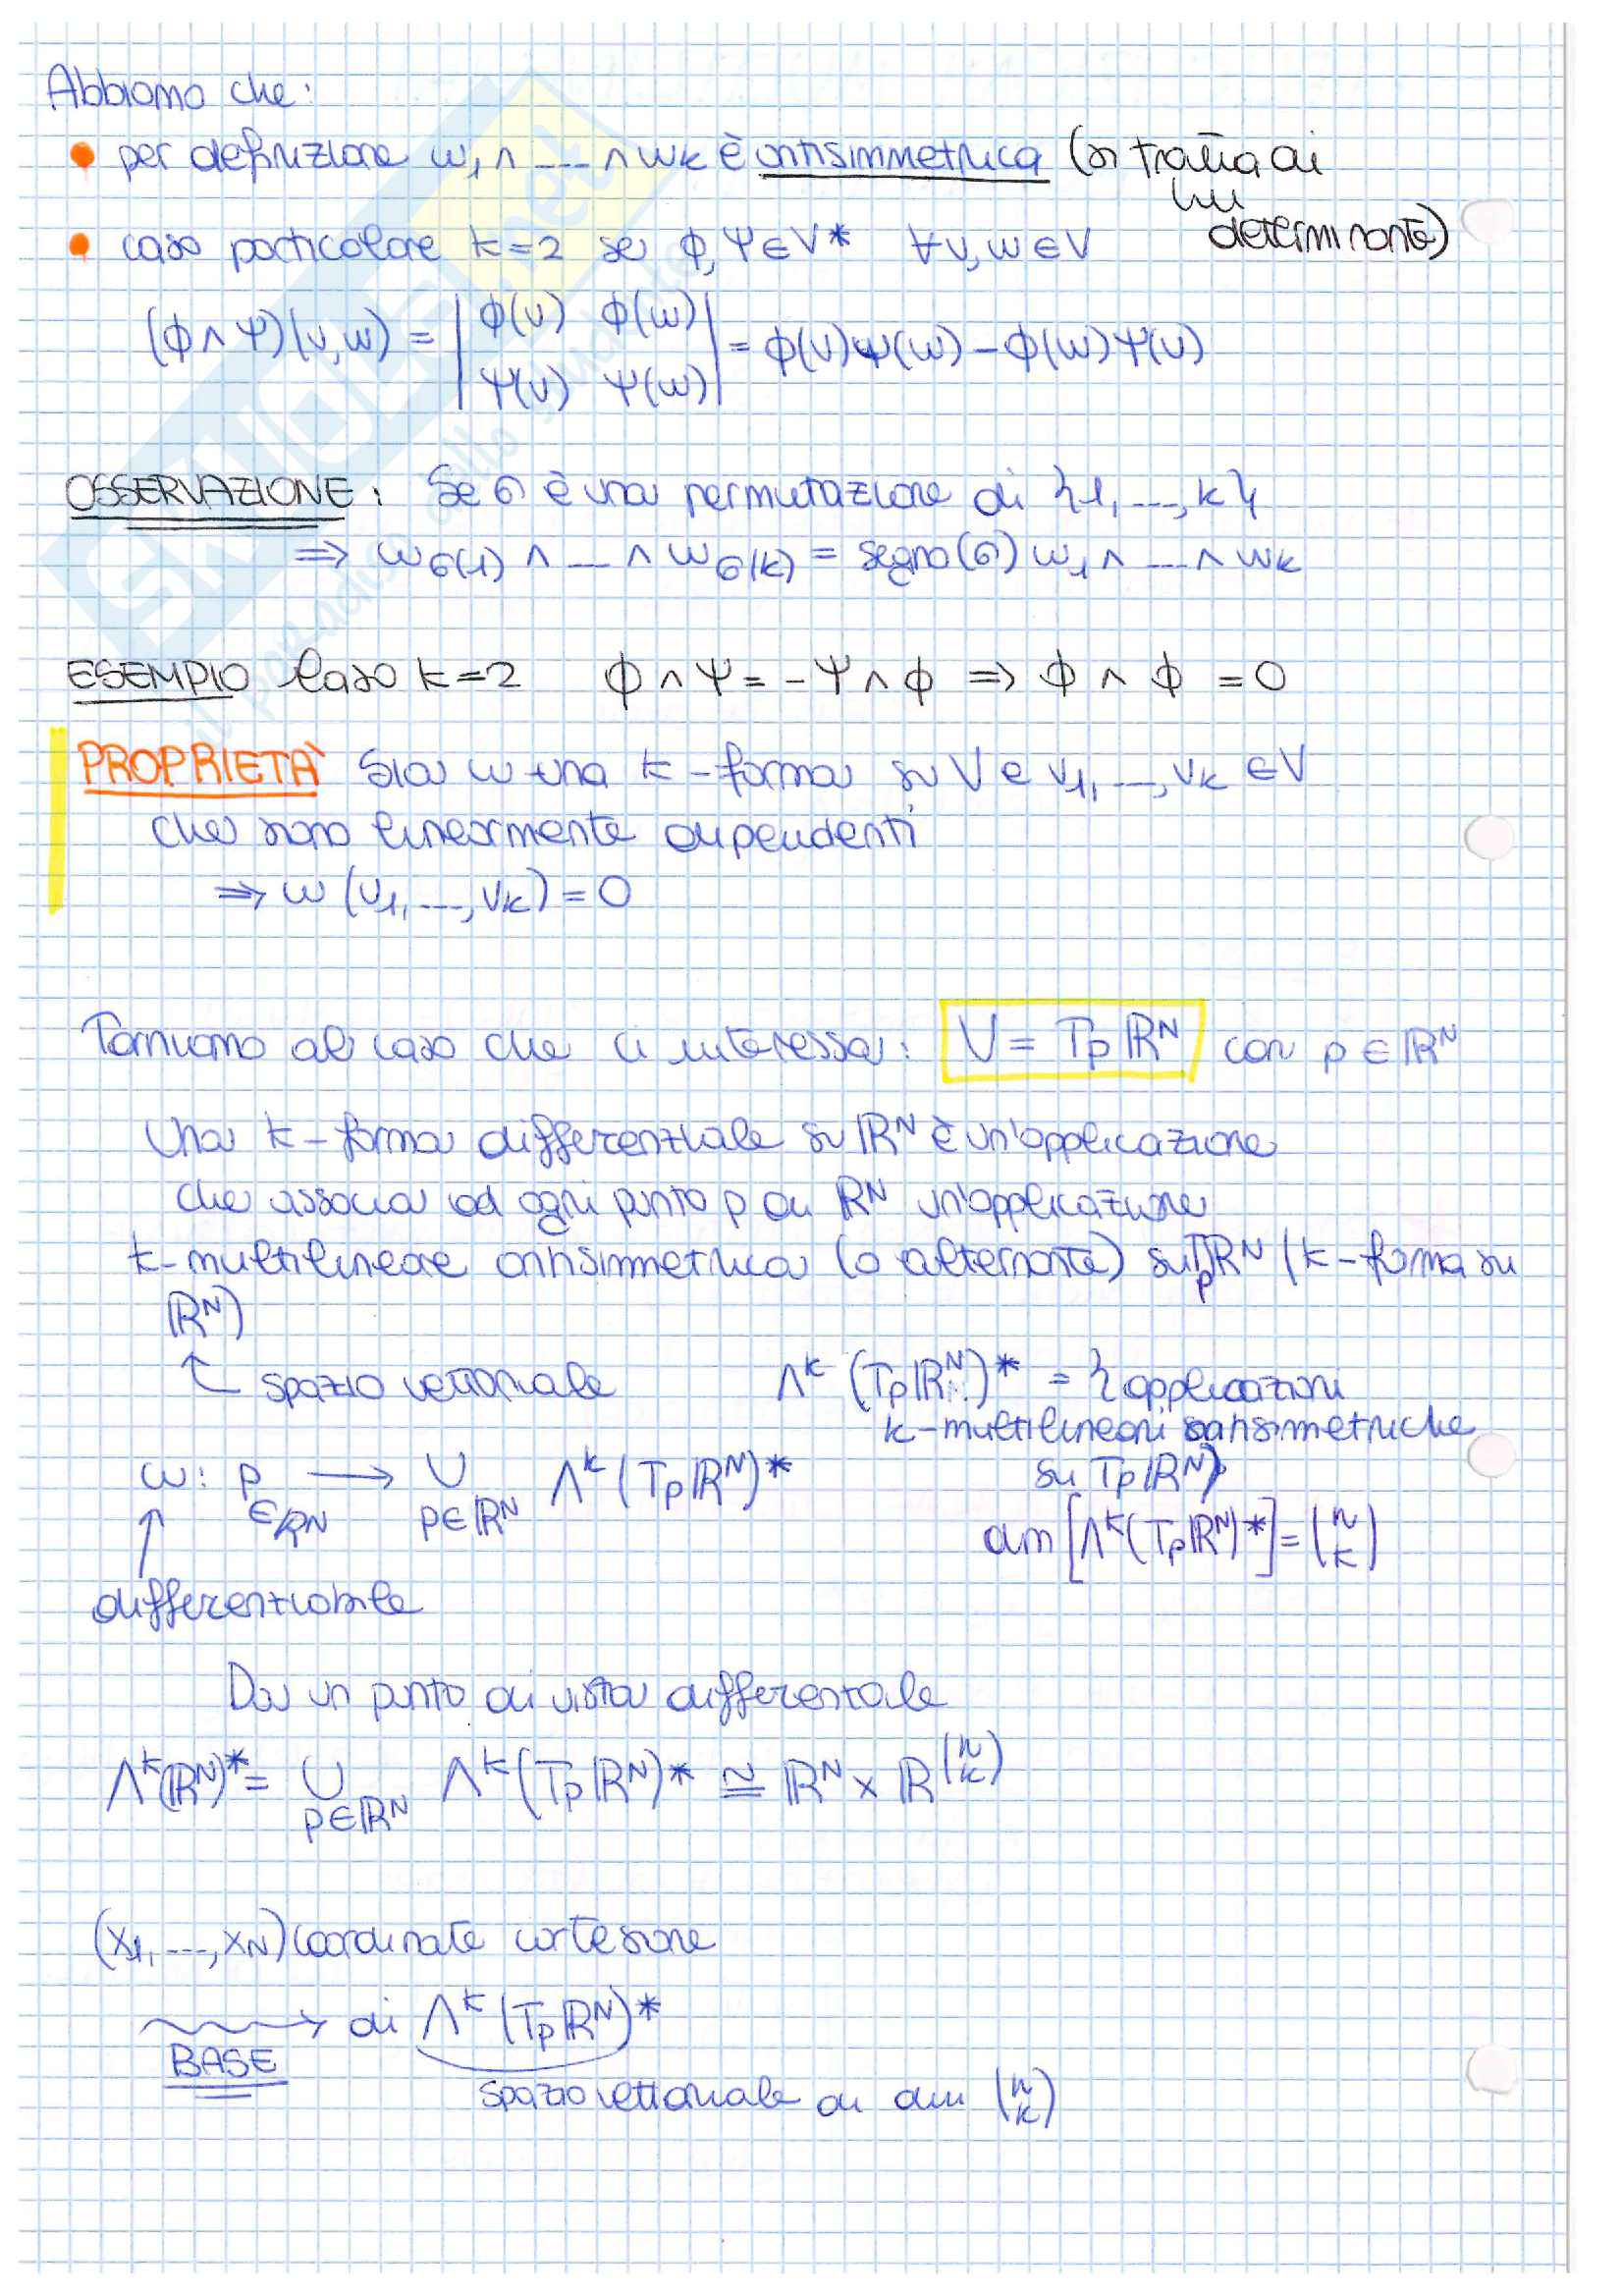 Abbiamo che:
• per definizione ω₁ ∧ ... ∧ ωk è antisimmetrica (si tratta di
un
determinante)
• caso particolare k=2 se φ, Ψ ∈ V* ∀ v, w ∈ V
(φ ∧ Ψ)(v, w) = | φ(v) φ(w) | = φ(v)Ψ(w) - φ(w)Ψ(v)
| Ψ(v) Ψ(w) |
OSSERVAZIONE: Se σ è una permutazione di {1, ..., k}
⇒ ωσ(1) ∧ ... ∧ ωσ(k) = segno(σ) ω₁ ∧ ... ∧ ωk
ESEMPIO Caso k=2 φ ∧ Ψ = - Ψ ∧ φ ⇒ φ ∧ φ = 0
PROPRIETÀ Sia ω una k-forma su V e v₁, ..., vk ∈ V
che sono linearmente dipendenti
⇒ ω(v₁, ..., vk) = 0
Torniamo al caso che ci interessa: V = TpℝN con p ∈ ℝN
Una k-forma differenziale su ℝN è un'applicazione
che associa ad ogni punto p di ℝN un'applicazione
k-multilineare antisimmetrica (o alternante) su TpℝN (k-forma su
ℝN)
↖ spazio vettoriale Λk(TpℝN)* = {applicazioni
k-multilineari antisimmetriche
su TpℝN}
ω: p ∈ℝN ⟶ ∪ p∈ℝN Λk(TpℝN)*
dim[Λk(TpℝN)*] = (n k)
↑
differenziabile
Da un punto di vista differenziale
Λk(ℝN)* = ∪ p∈ℝN Λk(TpℝN)* ≅ ℝN × ℝ(n k)
(x₁, ..., xN) coordinate cartesiane
⟿ di Λk(TpℝN)*
BASE
spazio vettoriale di dim (n k)